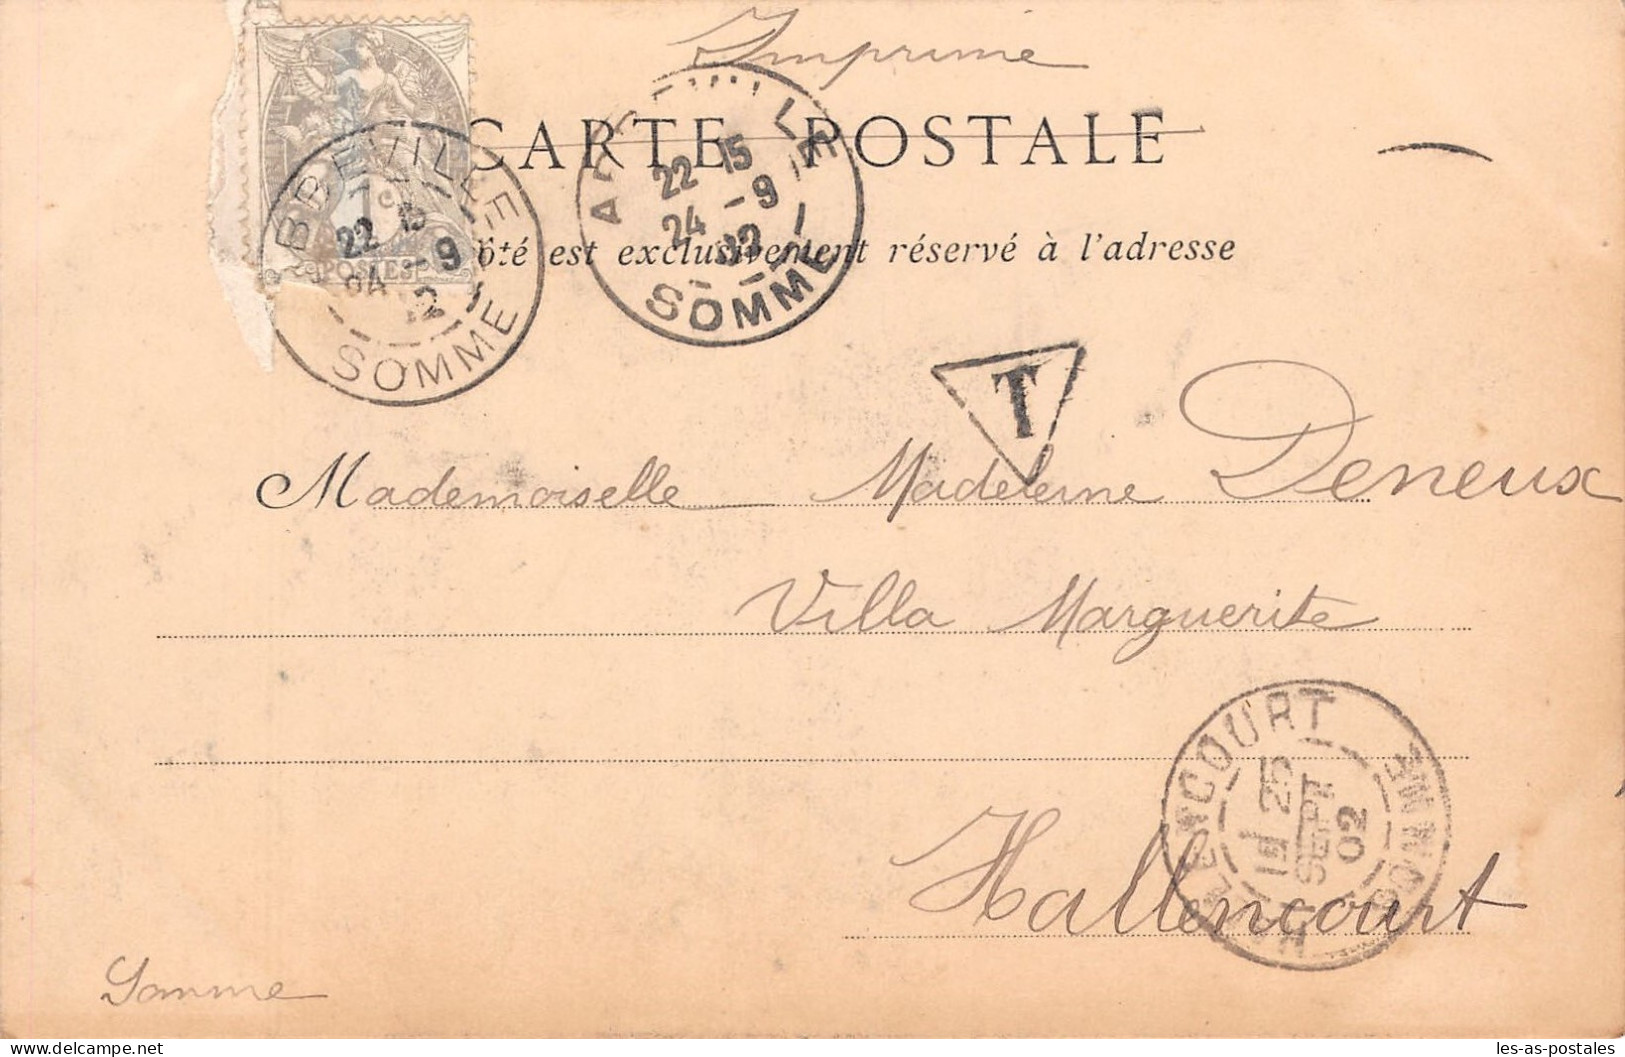 Imprimé
CARTE POSTALE
Côté est exclusivement réservé à l'adresse
1c
POSTES
ABBEVILLE
22 15
24 - 9
02
SOMME
ABBEVILLE
22 15
24 - 9
02
SOMME
T
Mademoiselle Madeleine Deneux
Villa Marguerite
HALLENCOURT
25
SEPT
02
SOMME
Hallencourt
Somme
les-as-postales
delcampe.net